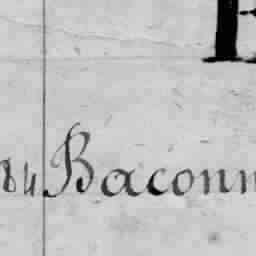 84 Baconn